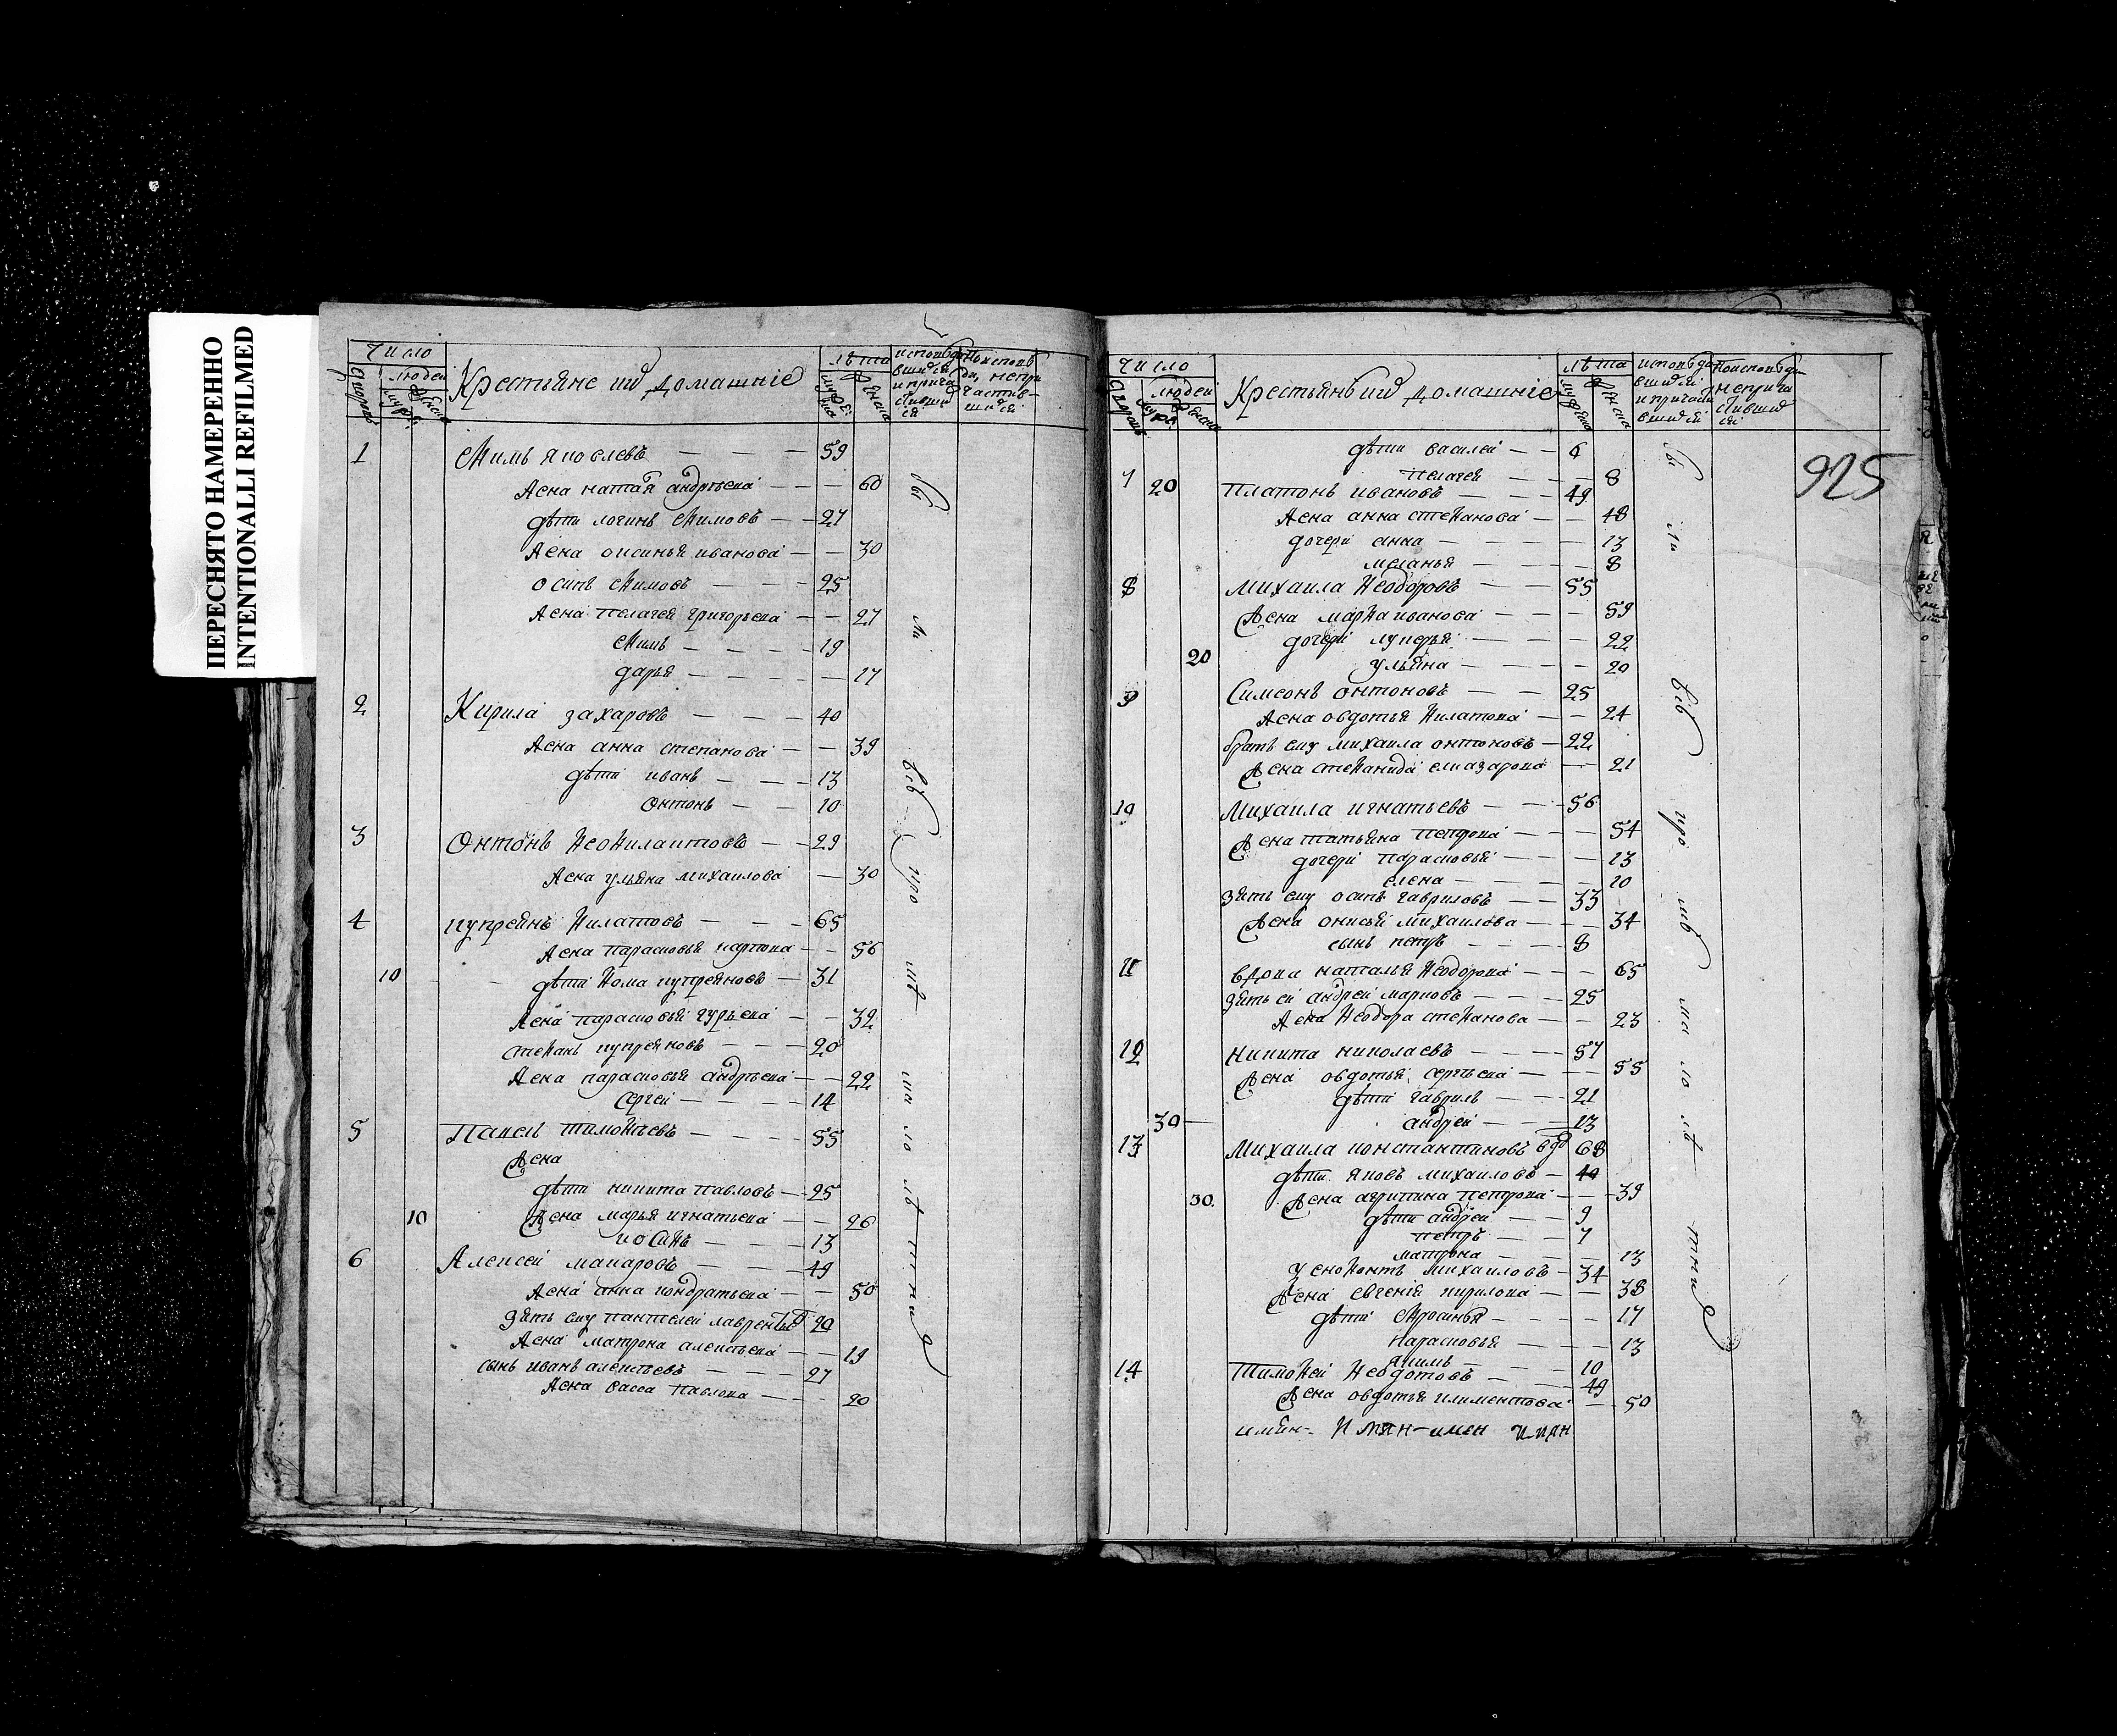 ПЕРЕСНЯТО НАМЕРЕННО
INTENTIONALLI REFILMED
число
людей
Крестьяне ихъ домашніе
лѣта
1 Ѳимъ яковлевъ — — — 59
жена наталя андрѣева — — — 60
дѣти логинъ Ѳимовъ — — 27
жена оксинья иванова — — 30
осипъ Ѳимовъ — — — 25
жена пелагея григорьева — — 27
Ѳимъ — — — — 19
дарья — — — — — 17
2 Кирила захаровъ — — — 40
жена анна степанова — — 39
дѣти иванъ — — — 13
Онтонъ — — 10
3 Онтонъ Ѳеофилактовъ — — 29
жена ульяна михаилова — 30
4 купреянъ Филатовъ — — — 65
жена парасковья карпова — — 56
10 дѣти Фома купреяновъ — 31
жена парасковья гурьева — — 32
стефанъ купреяновъ — — — 20
жена парасковья андрѣева — — 22
сергеи — — — — 14
5 Павелъ тимофѣевъ — — — — 55
жена
дѣти никита павловъ — 25
10 жена марья игнатьева — — 26
— — — 13
6 Алексеи макаровъ — — — — 49
жена анна кондратьева — — 50
зять ему пантелеи 20
жена матрона алексѣева — — 19
сынъ иванъ алексѣевъ — — — 27
жена васса павлова — — — 20
925
число
людей
Крестьянъ ихъ домашніе
лѣта
дѣти василеи — — 6
пелагея — — — — 8
7 20 платонъ ивановъ — — — 49
жена анна стефанова — — 48
дочери анна — — — — 13
меланья — — — — 8
8 михаила Ѳеодоровъ — — — 55
жена марфа иванова — — — 59
дочери лукерья — — — — 22
20 ульяна — — — — 20
9 Симеонъ онтоновъ — — 25
жена овдотья Филатова — — 24
братъ ему михаила онтоновъ — 22
жена стефанида елиазарова — — 21
10 Михаила игнатьевъ — — — 56
жена татьяна петрова — — — 54
дочери парасковья — — — 13
елена — — — — — 10
зять ему осипъ гавриловъ — — 33
жена онисья михаилова — — 34
сынъ петръ — — — 8
11 вдова наталья Ѳеодорова — — — 65
зять еи андреи марковъ — — — 25
жена Ѳеодора стефанова — — 23
12 никита николаевъ — — — — 57
жена овдотья сергѣева — — — 55
дѣти гаврилъ — — — 21
30 андреи — — — 13
13 Михаила константиновъ вдо 68
дѣти яковъ михаиловъ — 40
30. жена агрипина петрова — — — 39
дѣти андреи — — 9
петръ — — 7
матрона — — — — 13
ксенофонтъ михаиловъ — 34
жена евгенія кирилова — — 38
дѣти Ефросинья — — — — 17
парасковья — — — 13
якимъ — — — — 10
14 Тимофеи Ѳедотовъ — — — 49
жена овдотья климентова — 50